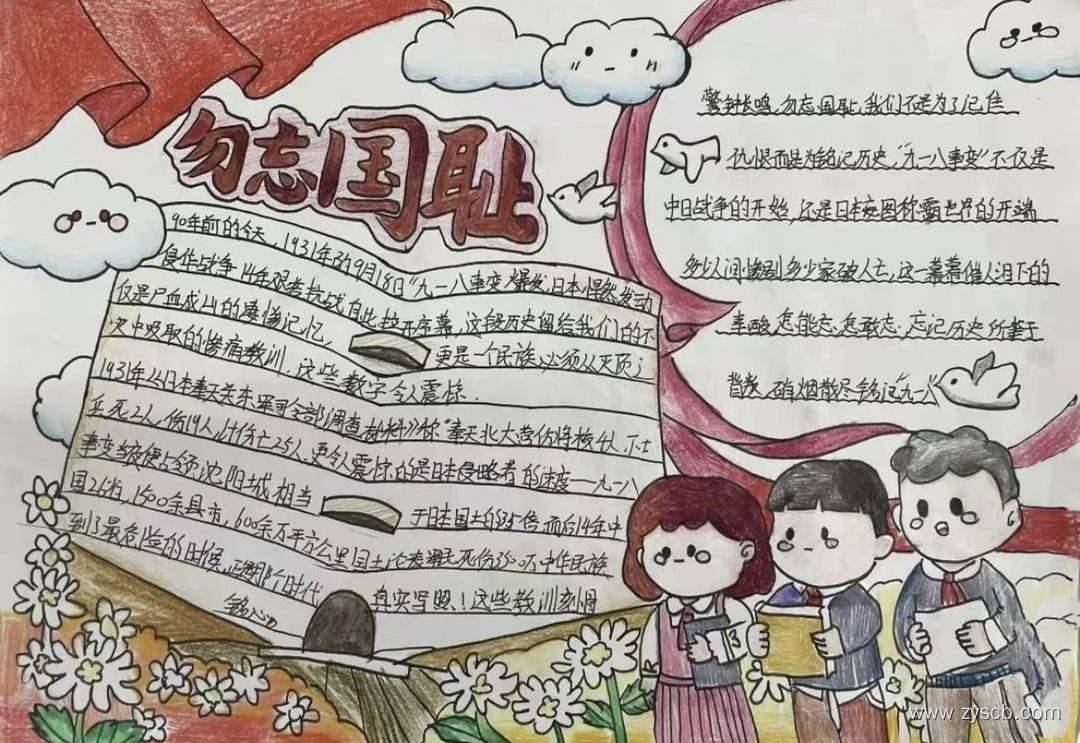 勿忘国耻
90年前的今天，1931年的9月18日"九一八事变"爆发，日本悍然发动
侵华战争，14年艰苦抗战自此拉开序幕，这段历史留给我们的不
仅是尸血成山的凄惨记忆，更是一个民族必须从灭顶之
灾中吸取的惨痛教训．这些数字令人震惊．
1931年
日本奉天关东军司令部《调查材料》称"奉天北大营伤将校4人，下士
兵死2人，伤19人，计伤亡25人，更令人震惊的是日本侵略者的速度——九一八
事变当夜便占领沈阳城 相当于日本国土的3.5倍，而后14年中
国26省，1500余县市，600余万平方公里国土沦丧 军民死伤3500万，中华民族
到了最危险的时候，正是那个时代真实写照．！这些教训刻骨
铭心
警钟长鸣，勿忘国耻，我们不是为了记住
仇恨而是为铭记历史．"九一八事变"不仅是
中日战争的开始，还是日本妄图称霸世界的开端
多少人间惨剧 多少家破人亡，这一幕幕催人泪下的
辛酸，怎能忘，怎敢忘，忘记历史所等于
背叛，硝烟散尽 铭记"九一八
www.zyscb.com